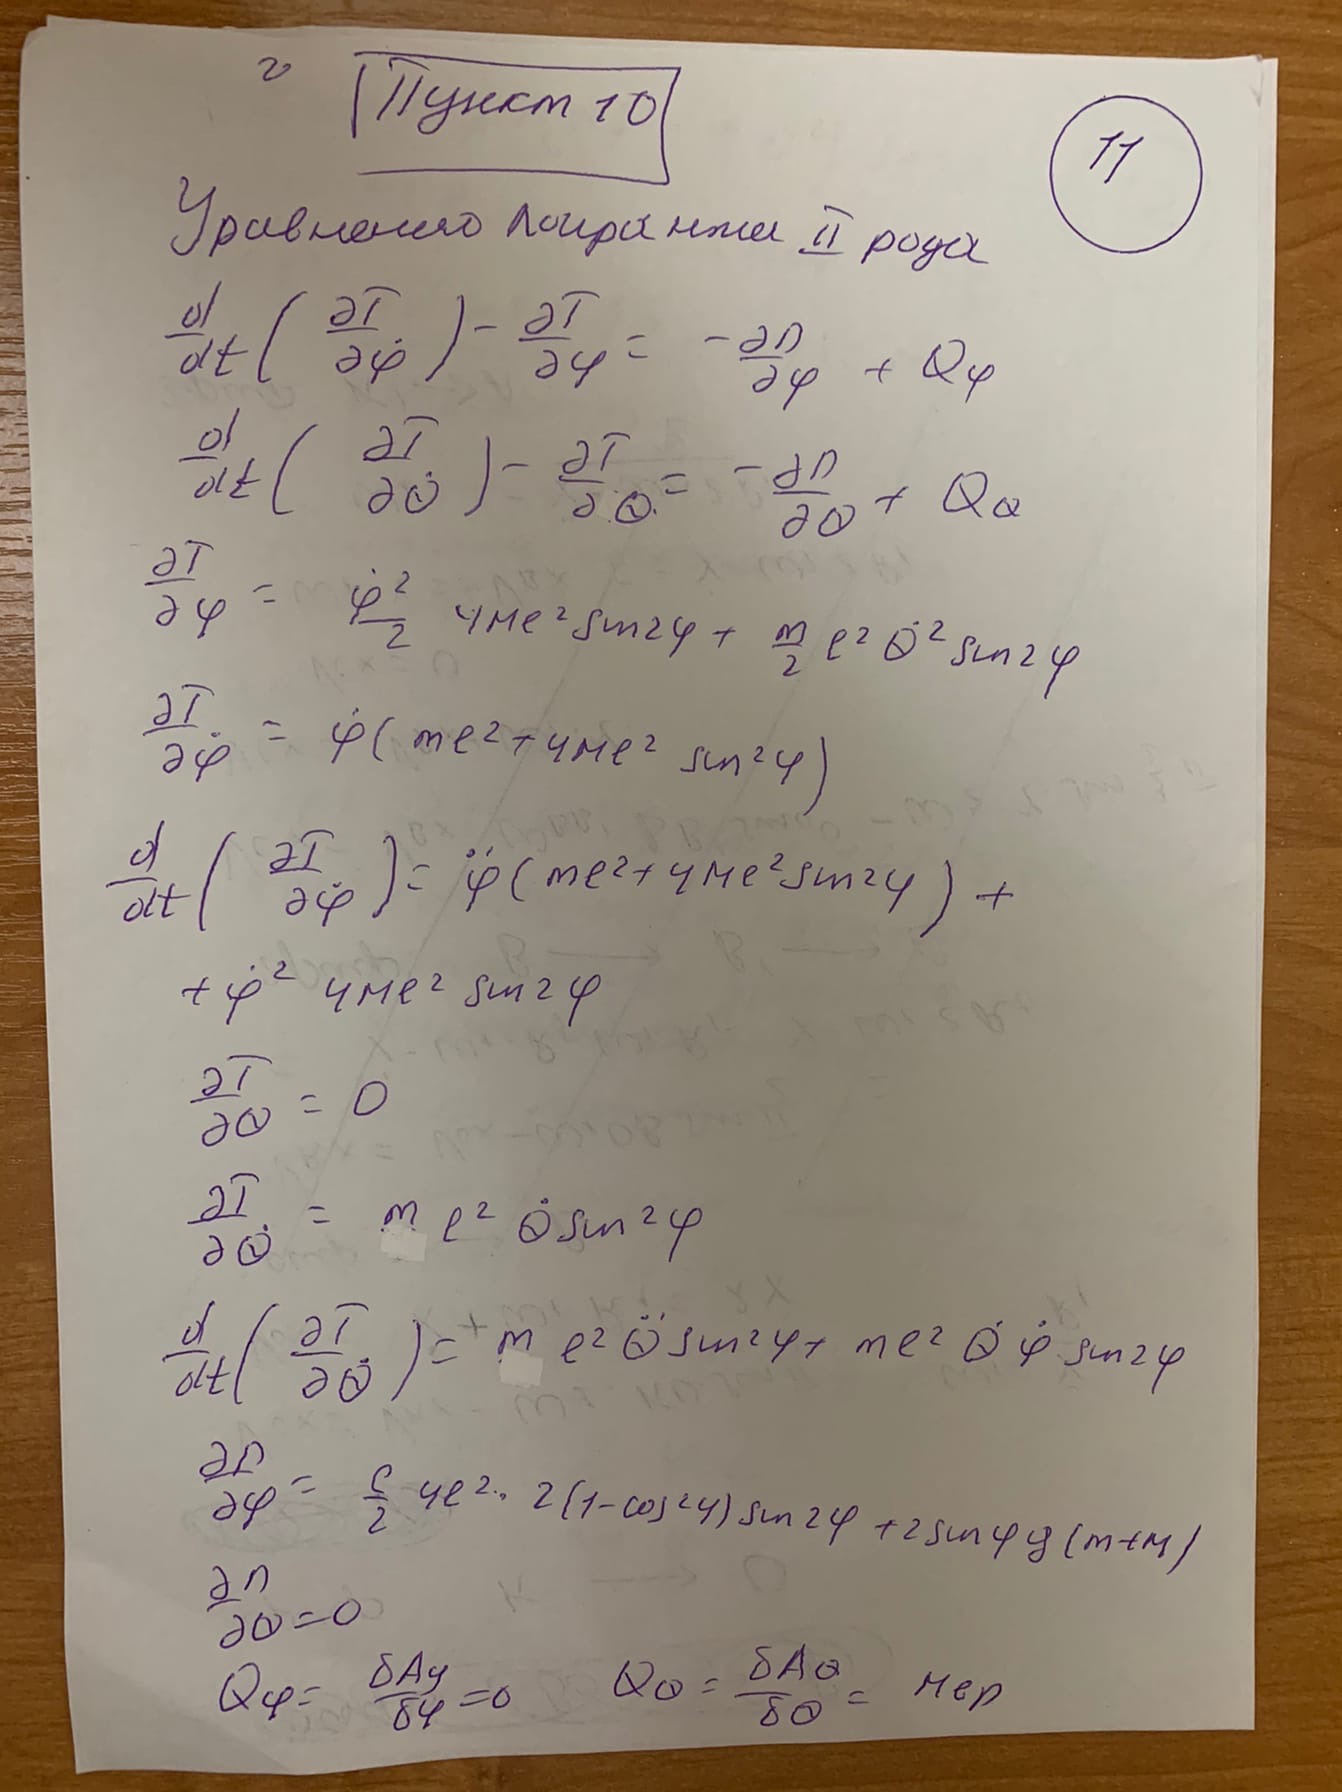 Пункт 10
11
Уравнения Лагранжа II рода
d/dt(∂T/∂φ̇) - ∂T/∂φ = -∂П/∂φ + Qφ
d/dt(∂T/∂θ̇) - ∂T/∂θ = -∂П/∂θ + Qθ
∂T/∂φ = φ̇²/2 4Mℓ² sin2φ + m/2 ℓ² θ̇² sin2φ
∂T/∂φ̇ = φ̇(mℓ² + 4Mℓ² sin²φ)
d/dt(∂T/∂φ̇) = φ̈(mℓ² + 4Mℓ² sin²φ) +
+ φ̇² 4Mℓ² sin2φ
∂T/∂θ = 0
∂T/∂θ̇ = mℓ² θ̇ sin²φ
d/dt(∂T/∂θ̇) = mℓ² θ̈ sin²φ + mℓ² θ̇ φ̇ sin2φ
∂П/∂φ = c/2 4ℓ² · 2(1-cos²φ) sin2φ + 2sinφ g(m+M)
∂П/∂θ = 0
Qφ = δAφ/δφ = 0 Qθ = δAθ/δθ = Mвр